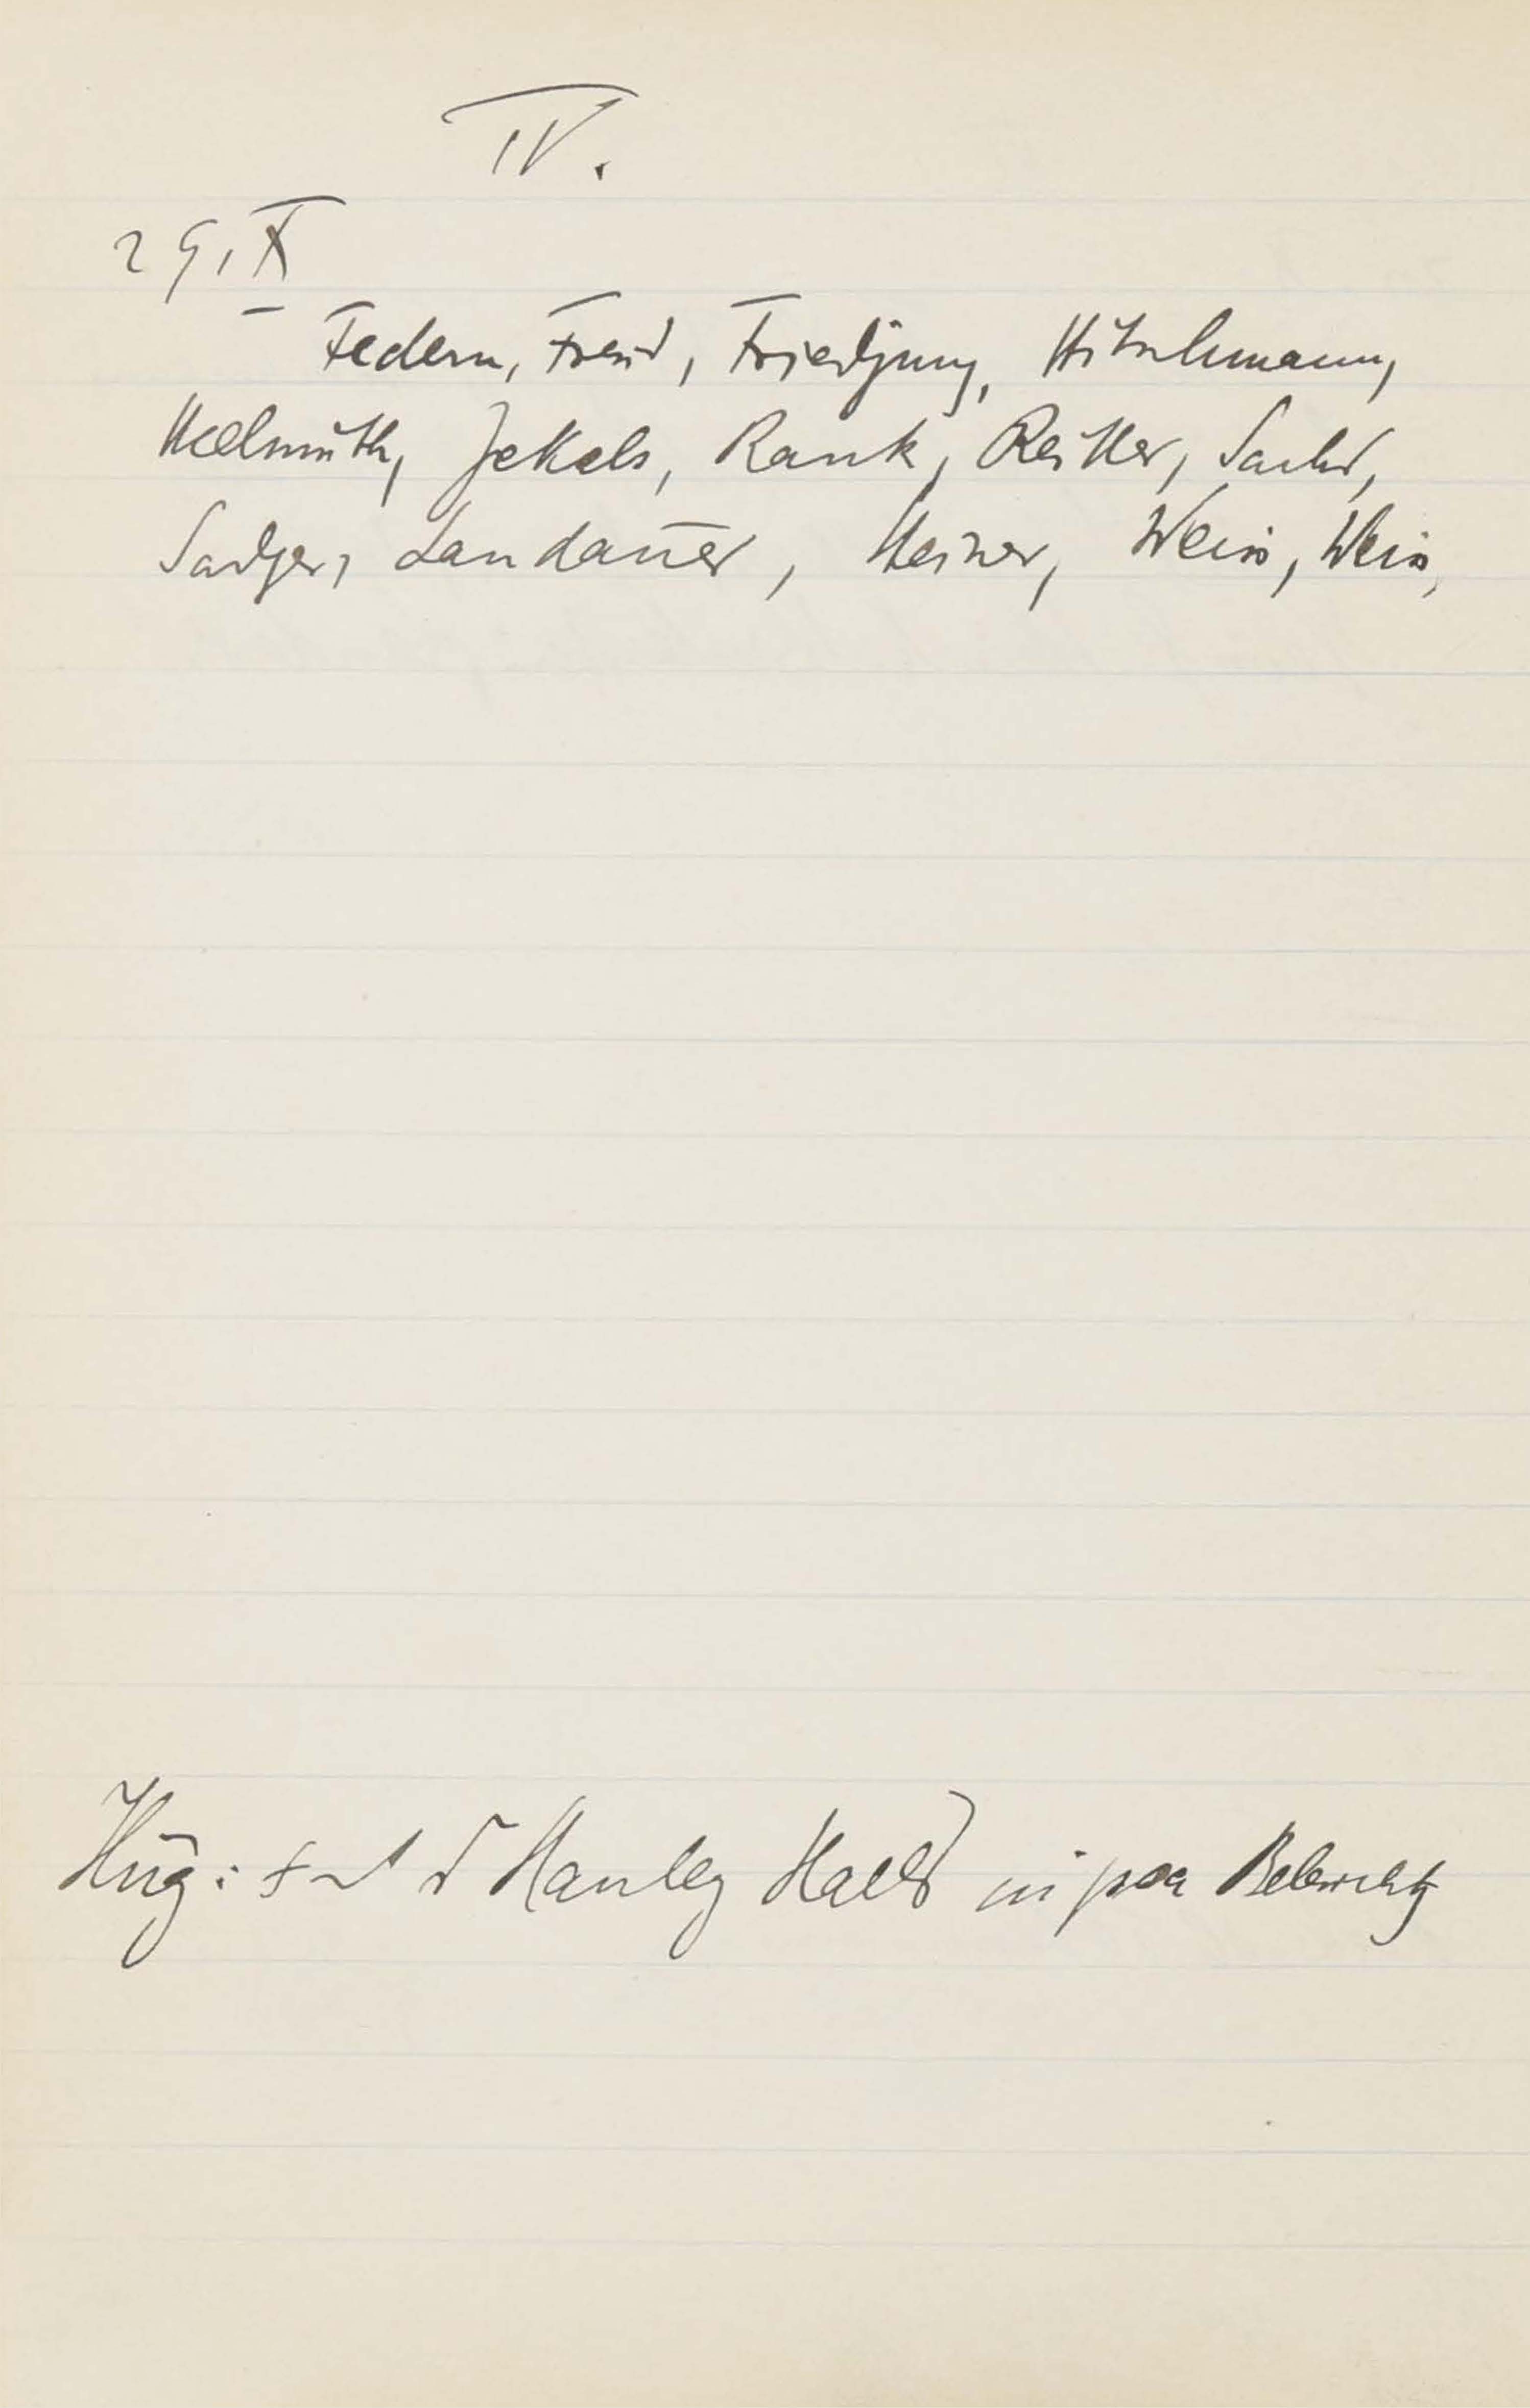 IV.
29. X
Federn, Freud, Friedjung, Hitschmann,
Hellmuth, Jekels, Rank, Reitler, Sachs,
Sadger, Landauer, Steiner, Weiss, Weiss,
Hug: St Hanley Halls in psa